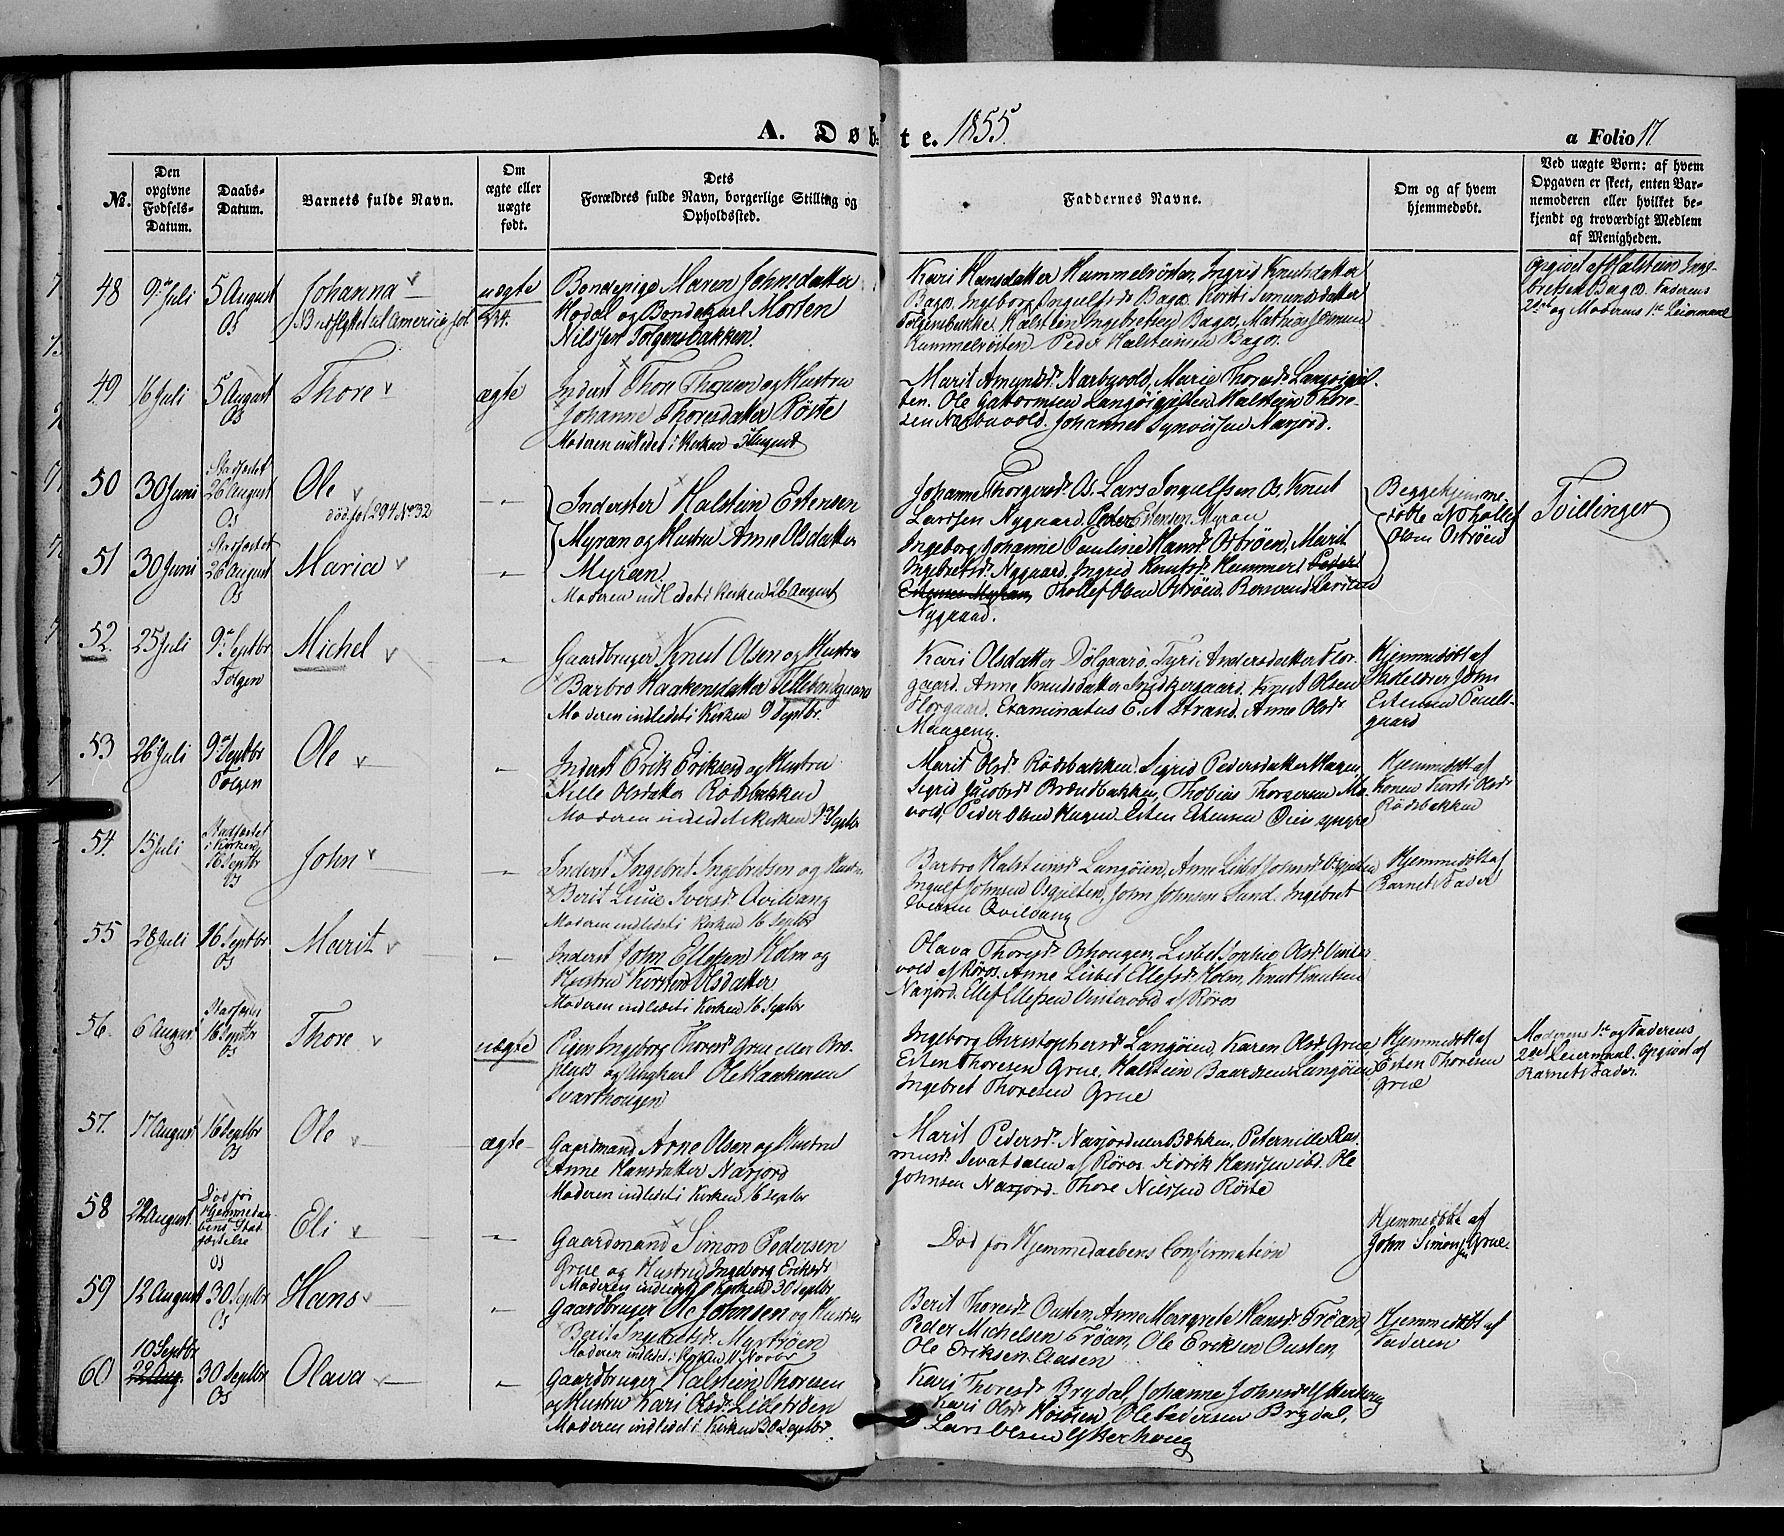 A. Døbte. 1855.
a Folio 17
No.
Den opgivne Fødsels-Datum.
Daabs-Datum.
Barnets fulde Navn.
Om ægte eller uægte født.
Dets Forældres fulde Navn, borgerlige Stilling og Opholdssted.
Faddernes Navne.
Om og af hvem hjemmedøbt.
Ved uægte Børn: af hvem Opgaven er skeet, enten Barnemoderen eller hvilket bekjendt og troværdigt Medlem af Menigheden.
48 9de Juli 5 August Os Johanna uægte
Bondepige Maren Johnsdatter
Hodal og Bondekarl Morten
Nilssen Tolgensbakken.
Kari Hansdatter Hummelvosten, Ingrid Knutsdatter
Bagæ, Ingeborg Ingulfsd. Bagæ. Kirsti Simunsdatter
Tolgensbakke, Halstein Ingebretsen Bagæ, Mathias
Hummelvosten Peder Halsteinsen Bagæ.
Opgivet af Halstein Inge-
bretsen Bagæ. Faderens
2det og Moderens 1ste Leiermaal
49 16 Juli 5 August Os Thore ægte
Inderst Thore Thoresen og Hustru
Johanne Thoresdatter Röste
Moderen indledet i Kirken 5 August
Marit Amundsd. Narbuvold, Marie Thoresd. Langöigjel-
ten. Ole Guttormsen Langöigjelten Halstein Thore-
sen Narbuvold. Johannes Narjord.
50 30 Juni Stadfæstet 26 August Os Ole
død fol 294 No 32
Inderster Halstein Estensen
Myran og Hustru Anne Olsdatter
Myran
Moderen indledet i Kirken 26 August
Johanne Thorgersd. Os. Lars Ingulfsen Os. Knut
Larssen Nygaard. Peder Estensen Myran
Begge hjemme-
døbte af Thollef
Olsen Ostrøen
Tvillinger
51 30 Juni Stadfæstet 26 August Os Maria
Ingeborg Johanne Pauline Hansd. Ostrøen, Marit
Ingebretsd. Nygaard, Ingrid Knutsd. Hummel Peder
Estensen Myran, Thollef Olsen Ostrøen,
Nygaard.
52. 25 Juli 9de Septbr Tolgen Michel
Gaardbruger Knut Olsen og Hustru
Barbro Haakensdatter
Moderen indledet i Kirken 9 Septbr.
Kari Olsdatter Dølgaard. Tyri Andersdatter Flor-
gaard. Anne Knudsdatter Knut Olsen
Florgaard. Examinatus E. A Strand. Anne Olsd.
Moageng.
Hjemmedøbt af
Skolelærer John
Estensen
gaard
53 26 Juli 9de Septbr Tolgen Ole
Inderst Erik Eriksen og Hustru
Nille Olsdatter Rödsbakken
Moderen indledet i Kirken 9de Septbr
Marit Olsd. Rødsbakken. Sigrid Pedersdatter Hagen,
Sigrid Jacobsd. Brændbakken, Thobias Thorgersen Mo-
vold, Peder Olsen Hagen Esten Estensen
Hjemmedøbt af
Konen Kirsti Olsd.
Rødsbakken
54. 15 Juli Stadfæstet i Kirken 16 Septbr Os John
Inderst Ingebret Ingebretsen og Hustru
Berit Lucie Iversd. Qvilvang
Moderen indledet i Kirken 16 Septbr
Barbro Halsteinsd. Langöien, Anne Lisbet Johnsd.
Ingulf Johnsen John Johnsen Sund, Ingebret
Iversen Qvilvang
Hjemmedøbt af
Barnets Fader
55 28 Juli 16 Septbr Os Marit
Inderst John Ellefsen Holm og
Hustru Kirsten Olsdatter
Moderen indledet i Kirken 16 Septbr
Olava Thoresd. Lisbet Sophie Olsd. Vinter-
vold af Røros. Anne Lisbet Ellefsd. Holm, Knut Knutsen
Narjord. Ellef Ellefsen Vintervold af Røros
56. 6 August 16 Septbr Os Thore uægte
Pigen Ingeborg Thoresd. Grue eller Bro-
og Ungkarl Ole Haakensen
Svarthougen
Ingeborg Christophersd. Langöien, Karen Olsd. Grue,
Esten Thoresen Grue, Halstein Baardsen Langöien,
Ingebret Thoresen Grue
Hjemmedøbt af
Esten Thoresen
Grue
Moderens 1ste og Faderens
2det Leiermaal. Opgivet af
Barnets Fader.
57. 17 August 16 Septbr Os Ole ægte
Gaardmand Arne Olsen og Hustru
Anne Hansdatter Narjord
Moderen indledet i Kirken 16 Septbr
Marit Pedersd. Narjord Bækken, Peternille Ras-
musd. af Røros. Fidrik Handsen ibd. Ole
Johnsen Narjord. Thore Nilssen Röste
58 22 August Død før Hjemmedaabens Stadfæstelse Os Eli
Gaardmand Simon Pedersen
Grue og Hustru Ingeborg Eriksd.
Moderen indledet i Kirken 30 Septbr
Død før Hjemmedaabens Confirmation
Hjemmedøbt af
John Simonsen Grue.
59 12 August 30 Septbr Os Hans
Gaardbruger Ole Johnsen og Hustru
Berit Ingebretsd. Myrtrøen
Moderen indledet i Kirken 11 Novbr
Berit Thoresd. Ousten, Anne Margrete Hansd. Trøan,
Peder Michelsen Trøan, Ole Eriksen Ousten,
Ole Eriksen Aasen
Hjemmedøbt af
Faderen
60 10 Septbr 22 Aug. 30 Septbr Os Olava
Gaardbruger Halstein Thoresen
og Hustru Kari Olsd.
Moderen indledet i Kirken 30 Septbr.
Kari Thoresd. Brydal, Johanne Johnsd. Ytterhoug
Kari Olsd. Ole Pedersen Brydal,
Lars Olsen Ytterhoug